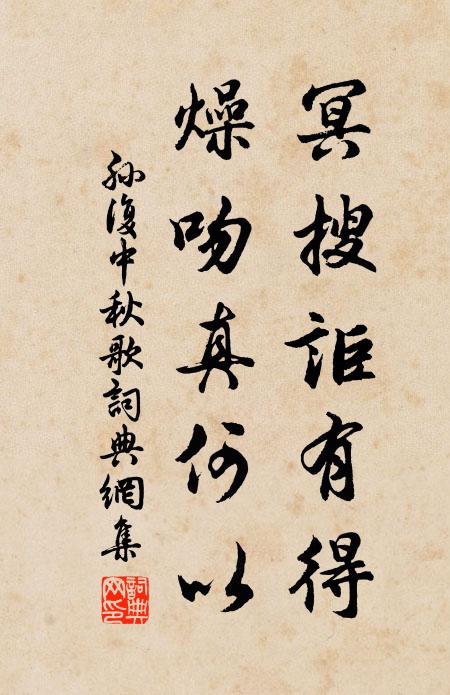 冥搜詎有得
燥吻真何以
孫復中秋歌詞典網集
詞典
网印